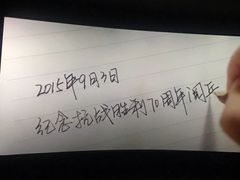 2015年9月3日
纪念抗战胜利70周年阅兵